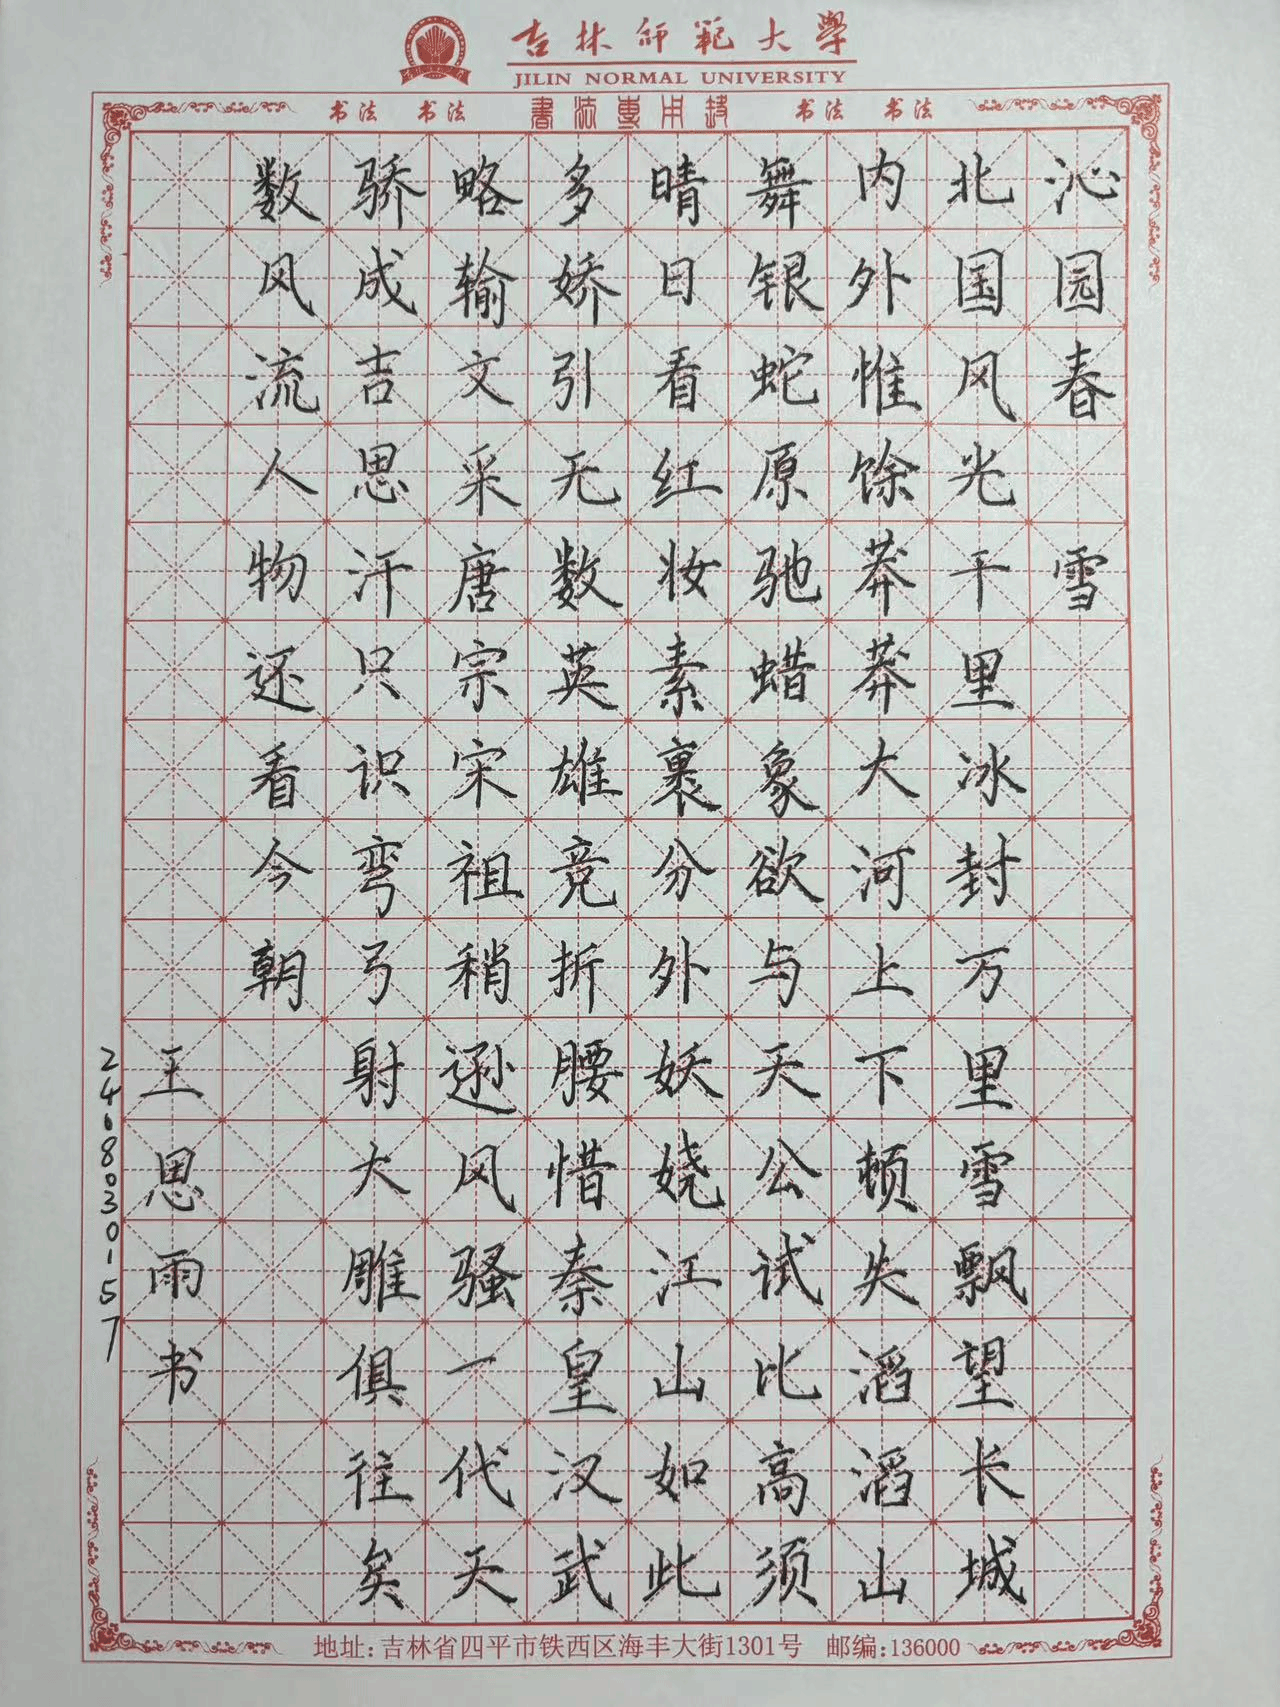 吉林师范大学
JILIN NORMAL UNIVERSITY
书法 书法 書法專用紙 书法 书法
沁园春 雪
北国风光千里冰封万里雪飘望长城
内外惟馀莽莽大河上下顿失滔滔山
舞银蛇原驰蜡象欲与天公试比高须
晴日看红妆素裹分外妖娆江山如此
多娇引无数英雄竞折腰惜秦皇汉武
略输文采唐宗宋祖稍逊风骚一代天
骄成吉思汗只识弯弓射大雕俱往矣
数风流人物还看今朝
王思雨书
2418030157
地址:吉林省四平市铁西区海丰大街1301号 邮编:136000